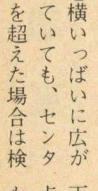 横いっぱいに広が
ていても、センタ
を超えた場合は検